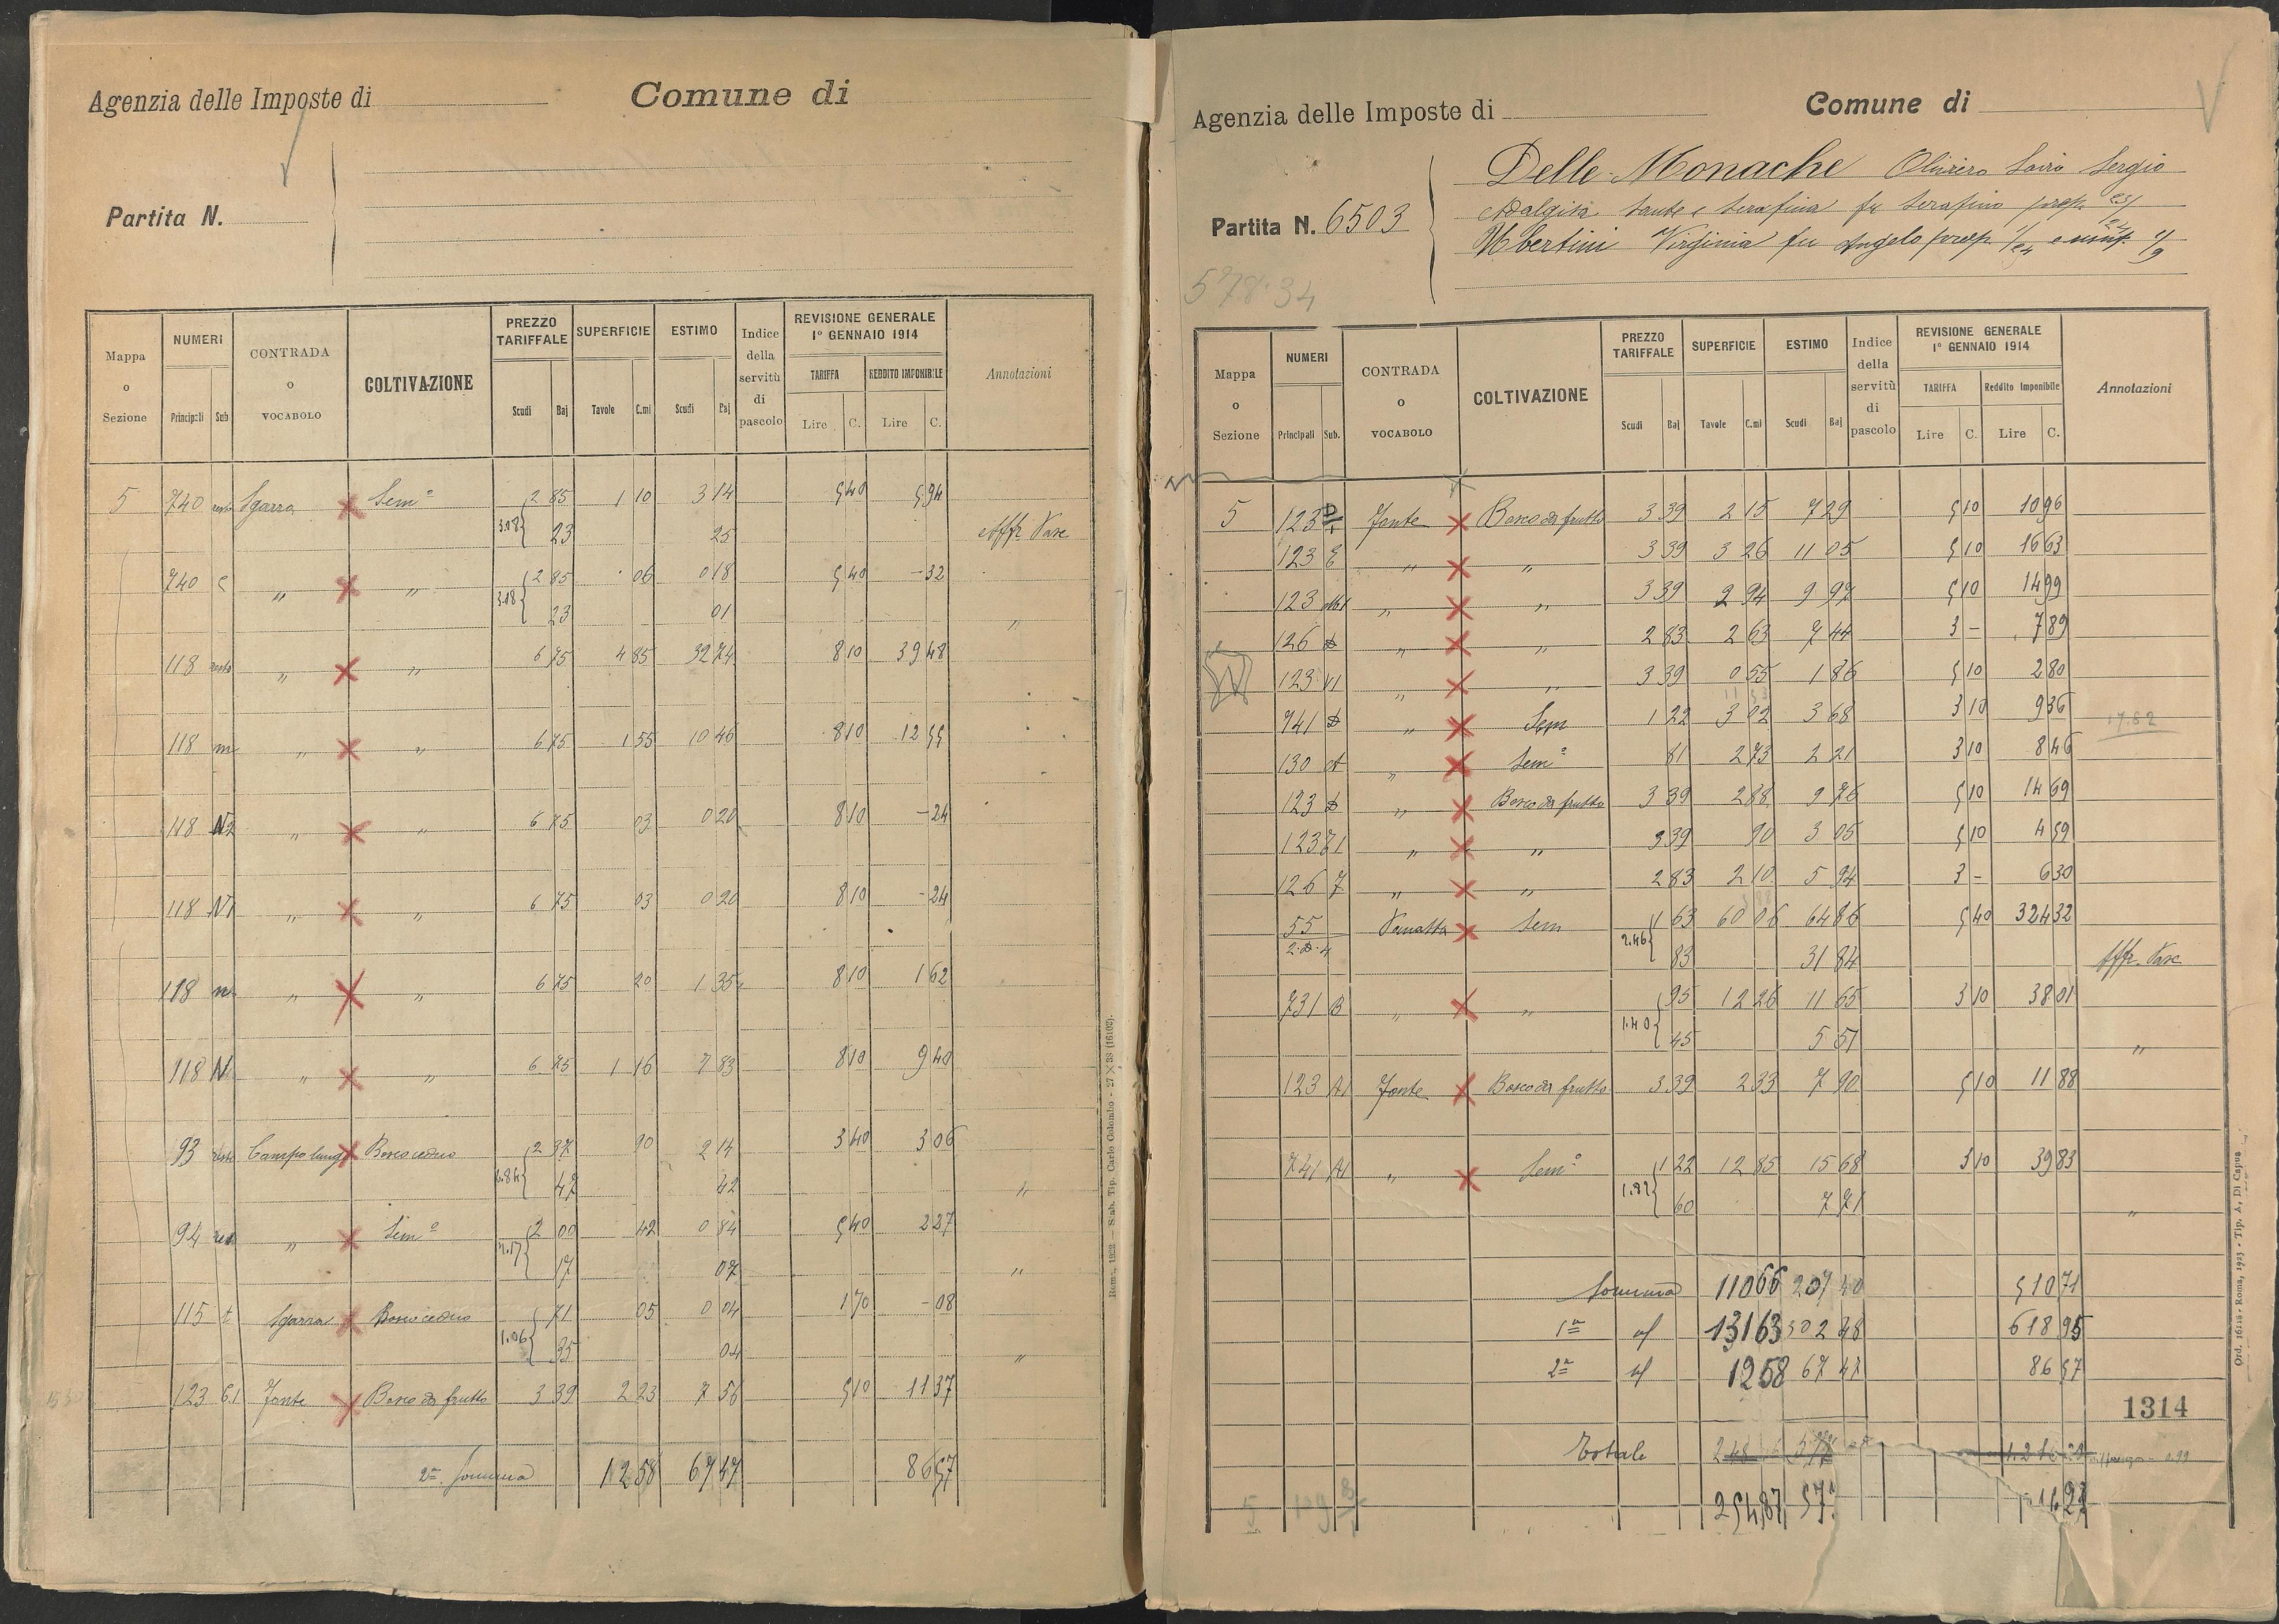 Agenzia delle Imposte di Comune di
Partita N.
Mappa o Sezione NUMERI Principali Sub CONTRADA o VOCABOLO COLTIVAZIONE PREZZO TARIFFALE Scudi Baj SUPERFICIE Tavole C.mi ESTIMO Scudi Baj Indice della servitù di pascolo REVISIONE GENERALE 1° GENNAIO 1914 TARIFFA Lire C. REDDITO IMPONIBILE Lire C. Annotazioni
5 740 resto Sgarra Sem° 2 85 1 10 3 14 5 40 5 94
3.08 23 25 Affr. Pasc
740 c " " 2 85 06 0 18 5 40 - 32
3.08 23 01 "
118 resto " " 6 75 4 85 32 74 8 10 39 48
118 m " " 6 75 1 55 10 46 8 10 12 55
118 N2 " " 6 75 03 0 20 8 10 - 24
118 N1 " " 6 75 03 0 20 8 10 - 24
118 n " " 6 75 20 1 35 8 10 1 62
118 N " " 6 75 1 16 7 83 8 10 9 40
93 resto Campo lungo Bosco ceduo 2 37 90 2 14 3 40 3 06
47 42 "
94 resto " Sem° 2 00 42 0 84 5 40 2 27
2.17 17 07 "
115 t Sgarra Bosco ceduo 71 05 0 04 1 70 - 08
1.06 35 04 "
123 C.1 Fonte Bosco da frutto 3 39 2 23 7 56 5 10 11 37
2ª Somma 12 58 67 47 86 57
Roma, 1922 — Stab. Tip. Carlo Colombo - 27 × 38 (16102).
Agenzia delle Imposte di Comune di
Partita N. 6503
Delle Monache Oliviero Sergio
Adalgisa Sante e Serafina fu Serafino prop.
Ubertini Virginia fu Angelo prop. 1/24 e usuf.
578.34
Mappa o Sezione NUMERI Principali Sub. CONTRADA o VOCABOLO COLTIVAZIONE PREZZO TARIFFALE Scudi Baj SUPERFICIE Tavole C.mi ESTIMO Scudi Baj Indice della servitù di pascolo REVISIONE GENERALE 1° GENNAIO 1914 TARIFFA Lire C. Reddito imponibile Lire C. Annotazioni
5 123 Fonte Bosco da frutto 3 39 2 15 7 29 5 10 10 96
123 E " " 3 39 3 26 11 05 5 10 16 63
123 " " 3 39 2 94 9 97 5 10 14 99
126 " " 2 83 2 63 7 44 3 - 7 89
123 " " 3 39 0 55 1 86 5 10 2 80
741 " Sem 1 22 3 02 3 68 3 10 9 36
130 A " Sem° 81 2 73 2 21 3 10 8 46
123 " Bosco da frutto 3 39 2 88 9 76 5 10 14 69
123 " " 3 39 90 3 05 5 10 4 59
126 " " 2 83 2 10 5 94 3 - 6 30
55 Sem 1 63 60 06 64 86 5 40 324 32
2.46 83 31 84 Affr. Pasc
731 B " " 95 12 26 11 65 3 10 38 01
1.40 45 5 51 "
123 Fonte Bosco da frutto 3 39 2 33 7 90 5 10 11 88
741 " Sem° 1 22 12 85 15 68 3 10 39 83
60 7 71 "
Somma 110 66 207 40 510 71
1ª 131 63 302 48 618 95
2ª 12 58 67 47 86 57
1314
Totale
254 87
Ord. 16112 - Roma, 1923 - Tip. A. Di Capua